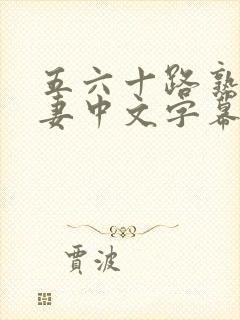 五六十路熟
妻中文字幕
贾波